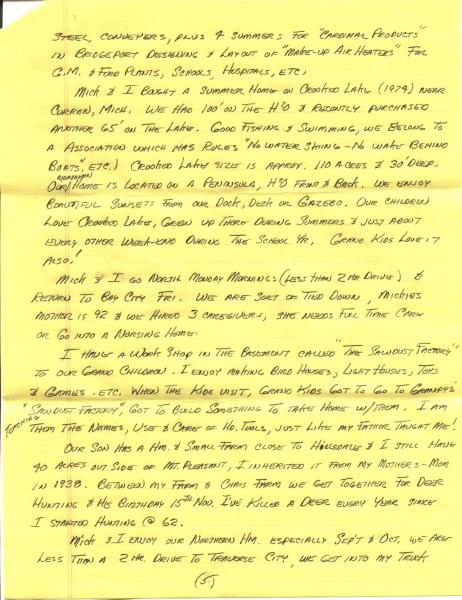 STEEL, CONVEYERS, PLUS 4 SUMMERS FOR "CARDINAL PRODUCTS"
IN BRIDGEPORT DESIGNING & LAYOUT OF "MAKE-UP AIR HEATERS" FOR
G.M. & FORD PLANTS, SCHOOLS, HOSPITALS, ETC,
MICK & I BOUGHT A SUMMER HOME ON CROOKED LAKE (1974) NEAR
CURRAN, MICH. WE HAD 100' ON THE H2O & RECENTLY PURCHASED
ANOTHER 65' ON THE LAKE. GOOD FISHING & SWIMMING, WE BELONG TO
A ASSOCIATION WHICH HAS RULES "NO WATER SKIING - NO WAKE BEHIND
BOATS", ETC.) CROOKED LAKE SIZE IS APPROX. 110 ACRES & 30' DEEP.
OUR NORTHERN HOME IS LOCATED ON A PENINSULA, H2O FRONT & BACK. WE ENJOY
BEAUTIFUL SUNSETS FROM OUR DOCK, DECK OR GAZEBO. OUR CHILDREN
LOVE CROOKED LAKE, GREW UP THERE DURING SUMMERS & JUST ABOUT
EVERY OTHER WEEK-END DURING THE SCHOOL YR, GRAND KIDS LOVE IT
ALSO!
MICK & I GO NORTH MONDAY MORNINGS (LESS THAN 2 HR DRIVE) &
RETURN TO BAY CITY FRI. WE ARE SORT OF TIED DOWN, MICKIES
MOTHER IS 92 & WE HIRED 3 CAREGIVERS, SHE NEEDS FULL TIME CARE
OR GO INTO A NURSING HOME.
I HAVE A WORK SHOP IN THE BASEMENT CALLED "THE SAWDUST FACTORY"
TO OUR GRAND CHILDREN. I ENJOY MAKING BIRD HOUSES, LIGHT HOUSES, TOYS
& GAMES. ETC. WHEN THE KIDS VISIT, GRAND KIDS GOT TO GO TO GRAMPY'S
"SAWDUST FACTORY", GOT TO BUILD SOMETHING TO TAKE HOME W/THEM. I AM
TEACHING THEM THE NAMES, USE & CARE OF HD. TOOLS, JUST LIKE MY FATHER TAUGHT ME!
OUR SON HAS A HM. & SMALL FARM CLOSE TO HILLSDALE & I STILL HAVE
40 ACRES OUT SIDE OF MT. PLEASANT, I INHERITED IT FROM MY MOTHERS-MOM
IN 1938. BETWEEN MY FARM & CHRIS FARM WE GET TOGETHER FOR DEER
HUNTING & HIS BIRTHDAY 15TH NOV. I'VE KILLED A DEER EVERY YEAR SINCE
I STARTED HUNTING @ 62.
MICK & I ENJOY OUR NORTHERN HM. ESPECIALLY SEP'T & OCT. WE ARE
LESS THAN A 2 HR. DRIVE TO TRAVERSE CITY, WE GET INTO MY TRUCK
(5)